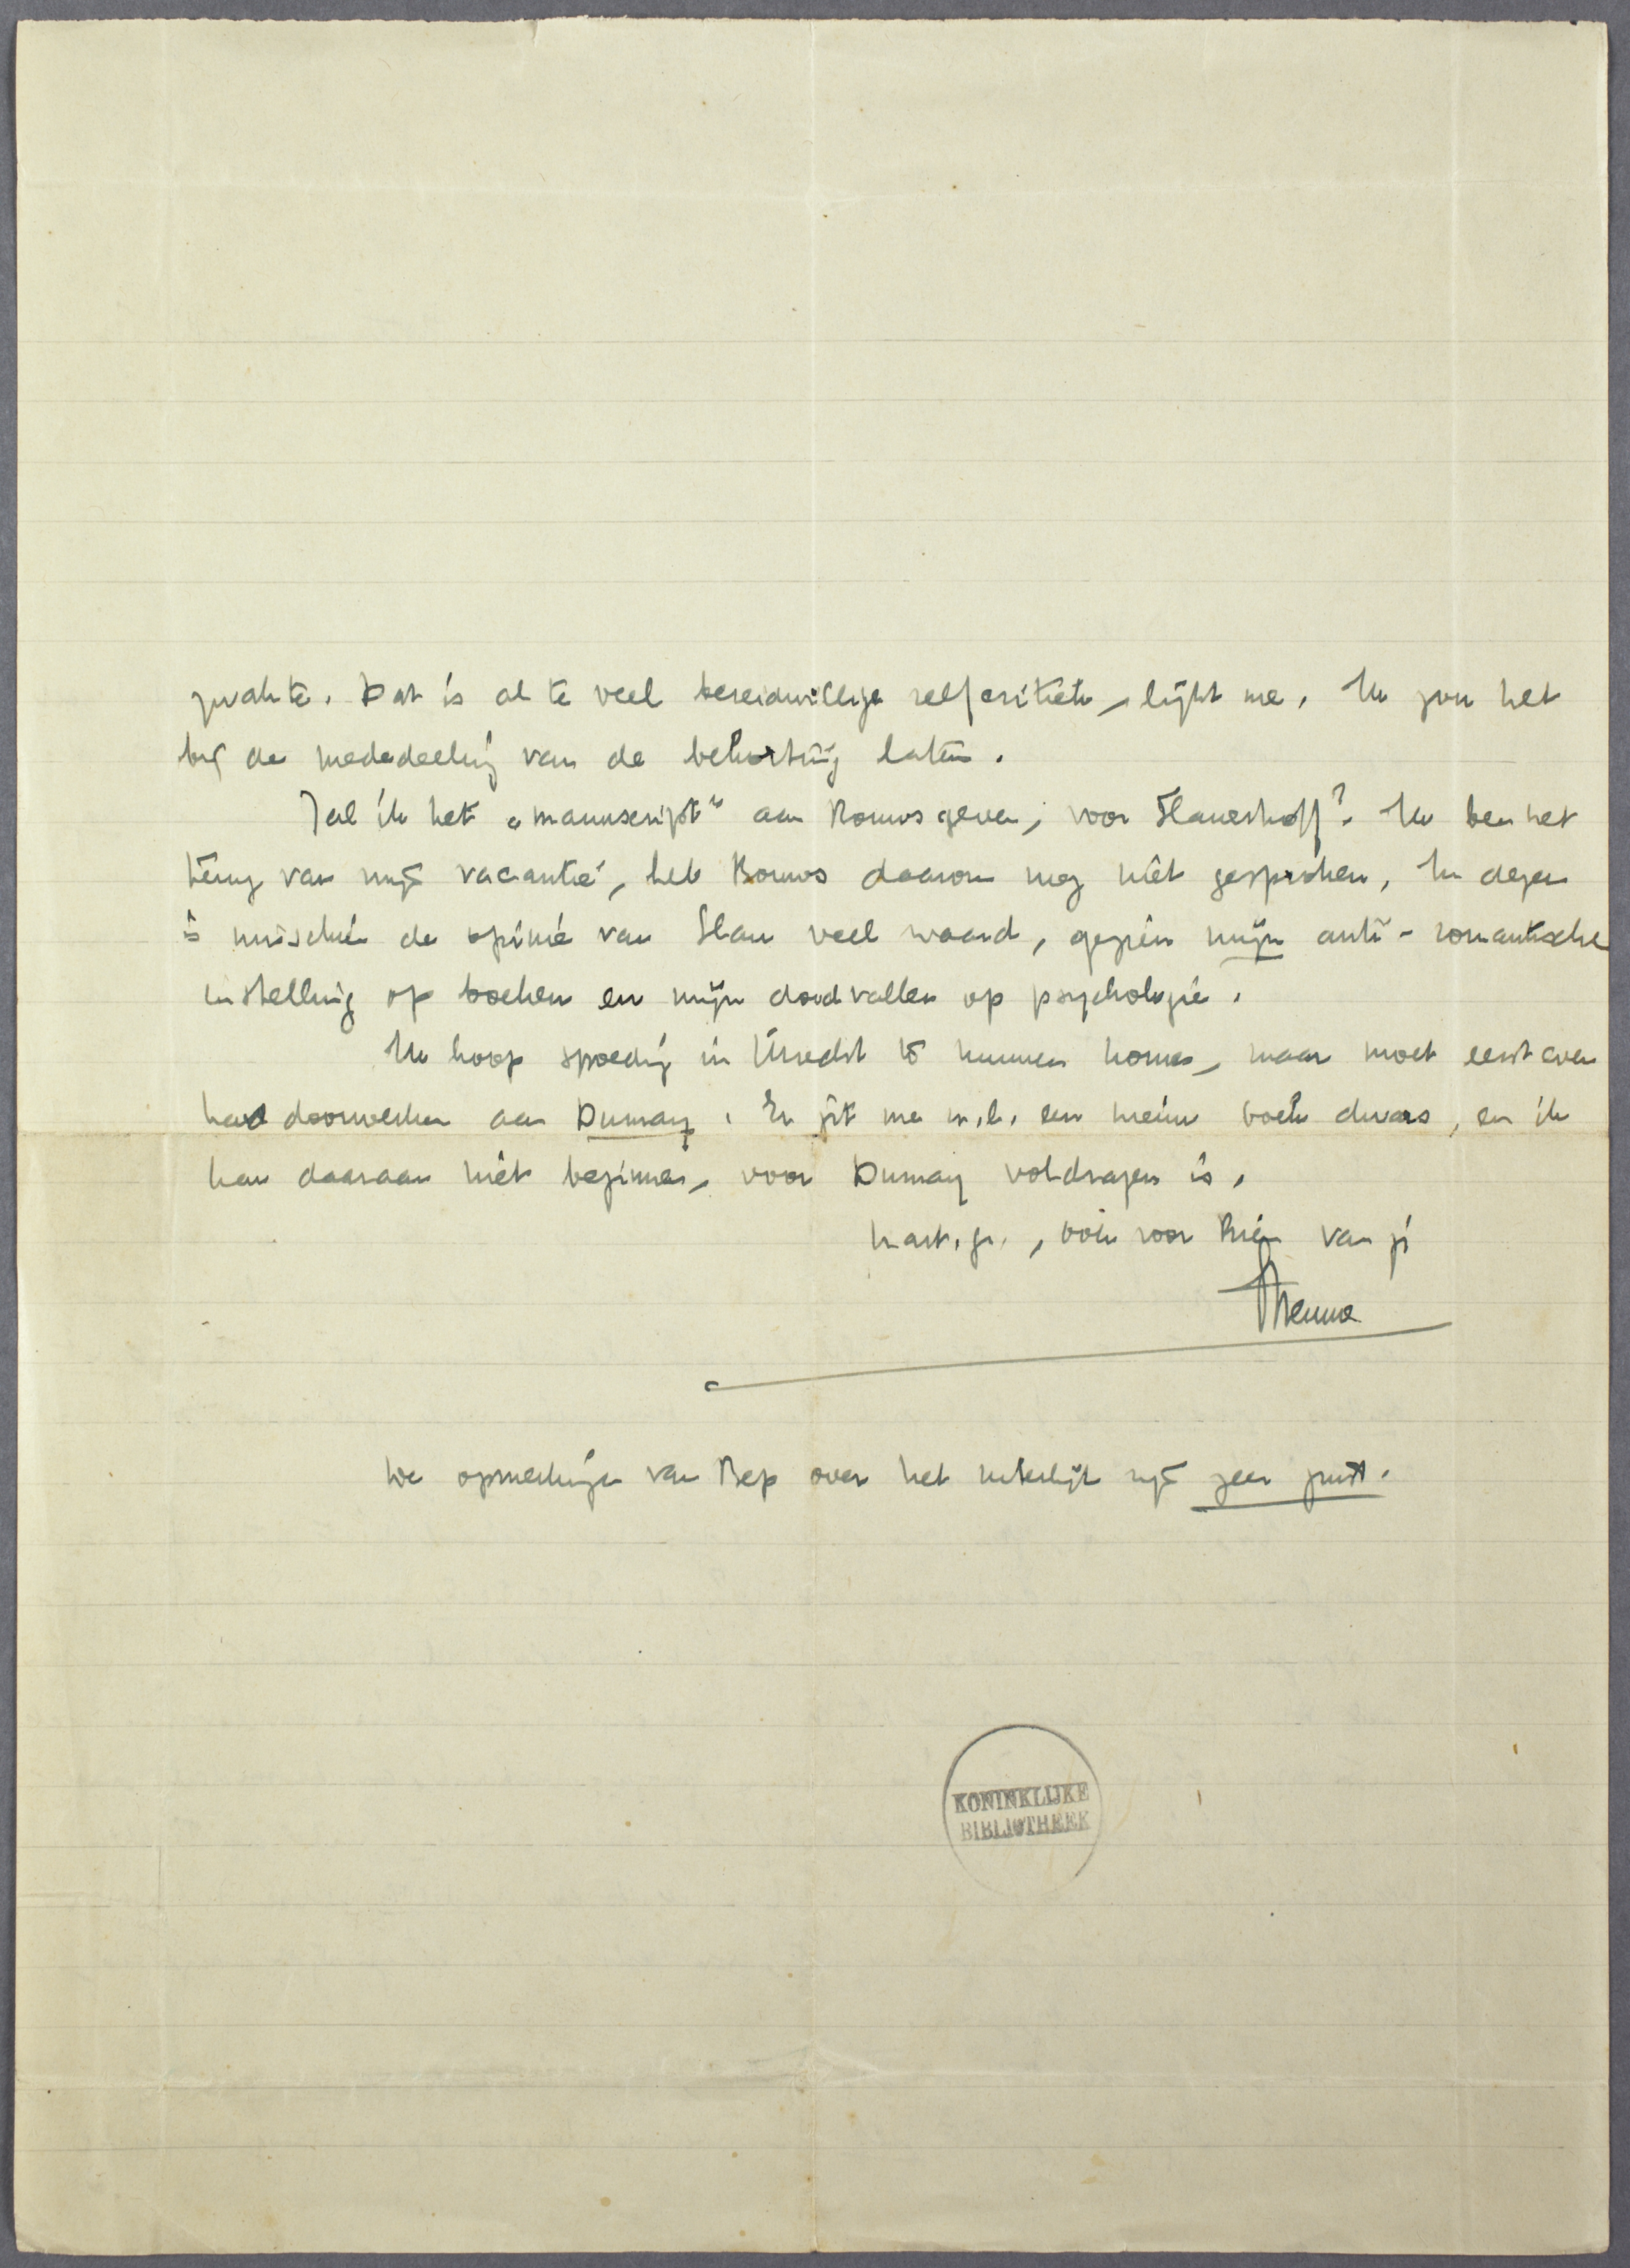 zwakte. Dat is al te veel bereidwillige zelfcritiek, lijkt me. Ik zou het
bij de mededeeling van de bekorting laten.
Zal ik het „manuscript" aan Bouws geven, voor Slauerhoff? Ik ben net
terug van mijn vacantie, heb Bouws daarom nog niet gesproken. In dezen
is misschien de opinie van Slau veel waard, gezien mijn anti-romantische
instelling op boeken en mijn doodvallen op psychologie.
Ik hoop spoedig in Utrecht te kunnen komen, maar moet eerst even
hard doorwerken aan Dumay. Er zit me n.l. een nieuw boek dwars, en ik
kan daaraan niet beginnen, voor Dumay voldragen is.
hart. gr., ook voor Rien van je
Menno
De opmerkingen van Bep over het uiterlijk zijn zeer juist.
KONINKLIJKE
BIBLIOTHEEK